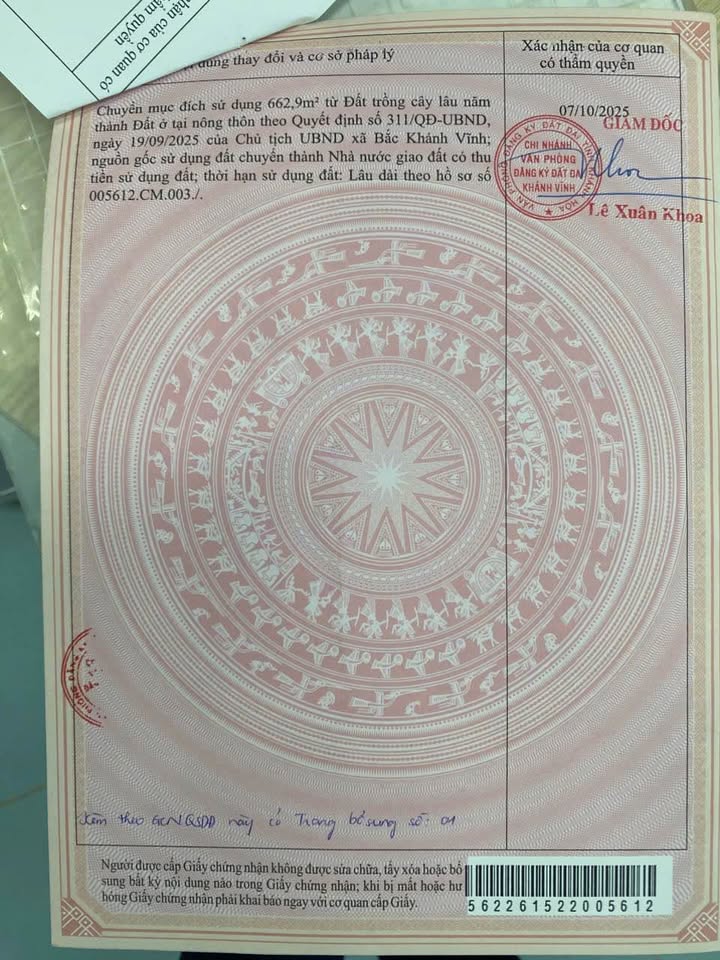 nhận của cơ quan có
thẩm quyền
dung thay đổi và cơ sở pháp lý
Xác nhận của cơ quan
có thẩm quyền
Chuyển mục đích sử dụng 662,9m² từ Đất trồng cây lâu năm
thành Đất ở tại nông thôn theo Quyết định số 311/QĐ-UBND,
ngày 19/09/2025 của Chủ tịch UBND xã Bắc Khánh Vĩnh;
nguồn gốc sử dụng đất chuyển thành Nhà nước giao đất có thu
tiền sử dụng đất; thời hạn sử dụng đất: Lâu dài theo hồ sơ số
005612.CM.003./.
07/10/2025
GIÁM ĐỐC
VĂN PHÒNG ĐĂNG KÝ ĐẤT ĐAI TỈNH KHÁNH HÒA
CHI NHÁNH
VĂN PHÒNG
ĐĂNG KÝ ĐẤT ĐAI
KHÁNH VĨNH
Lê Xuân Khoa
PHÒNG ĐĂNG
Kèm theo GCNQSDĐ này có Trang bổ sung số: 01
Người được cấp Giấy chứng nhận không được sửa chữa, tẩy xóa hoặc bổ
sung bất kỳ nội dung nào trong Giấy chứng nhận; khi bị mất hoặc hư
hỏng Giấy chứng nhận phải khai báo ngay với cơ quan cấp Giấy.
562261522005612